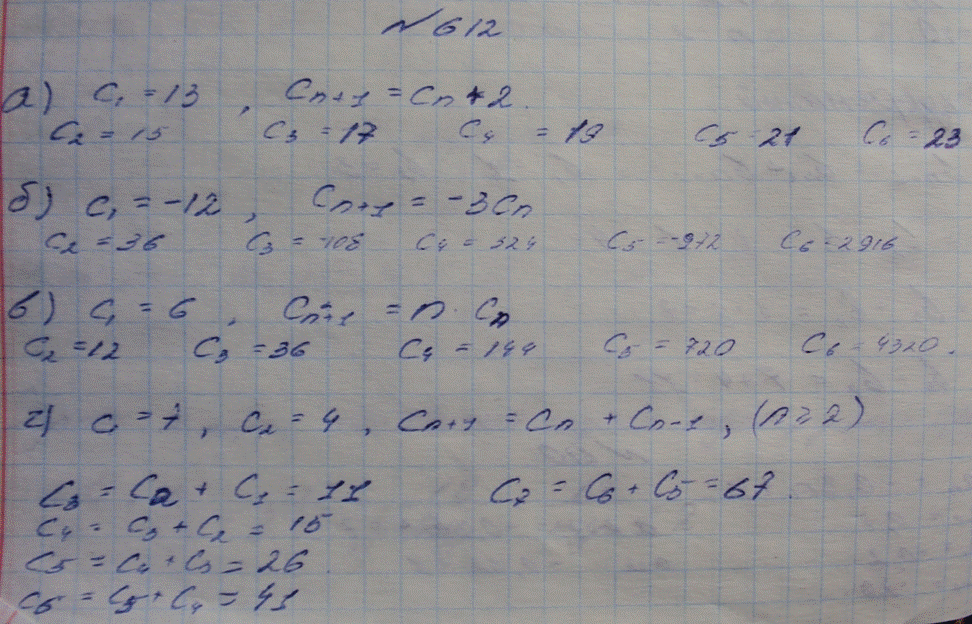 № 612
а) c₁ = 13 , cₙ₊₁ = cₙ + 2.
c₂ = 15 c₃ = 17 c₄ = 19 c₅ = 21 c₆ = 23
б) c₁ = -12 , cₙ₊₁ = -3cₙ
c₂ = 36 c₃ = -108 c₄ = 324 c₅ = -972 c₆ = 2916
в) c₁ = 6 , cₙ₊₁ = n · cₙ
c₂ = 12 c₃ = 36 c₄ = 144 c₅ = 720 c₆ = 4320.
г) c₁ = 7 , c₂ = 4 , cₙ₊₁ = cₙ + cₙ₋₁ , (n ≥ 2)
c₃ = c₂ + c₁ = 11 c₇ = c₆ + c₅ = 67.
c₄ = c₃ + c₂ = 15
c₅ = c₄ + c₃ = 26
c₆ = c₅ + c₄ = 41